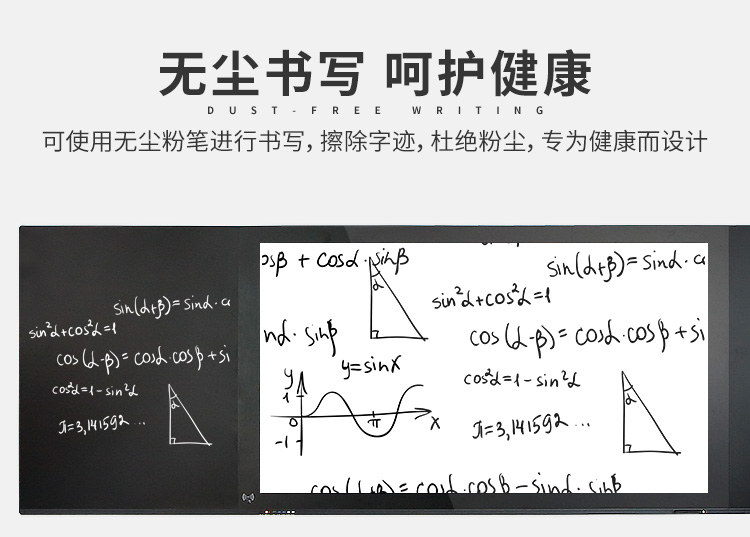 无尘书写 呵护健康
DUST-FREE WRITING
可使用无尘粉笔进行书写，擦除字迹，杜绝粉尘，专为健康而设计
sin(α+β)=sinα·c
sin²α+cos²α=1
cos(α-β)=cosα·cosβ+si
cos²α=1-sin²α
α
π=3,141592...
osβ + cosα·sinβ
sin(α+β)=sinα·c
α
sin²α+cos²α=1
nα·sinβ
cos(α-β)=cosα·cosβ+si
y=sinx
y
1
0
π
x
-1
cos²α=1-sin²α
α
π=3,141592...
cos(α+β)=cosα·cosβ-sinα·sinβ